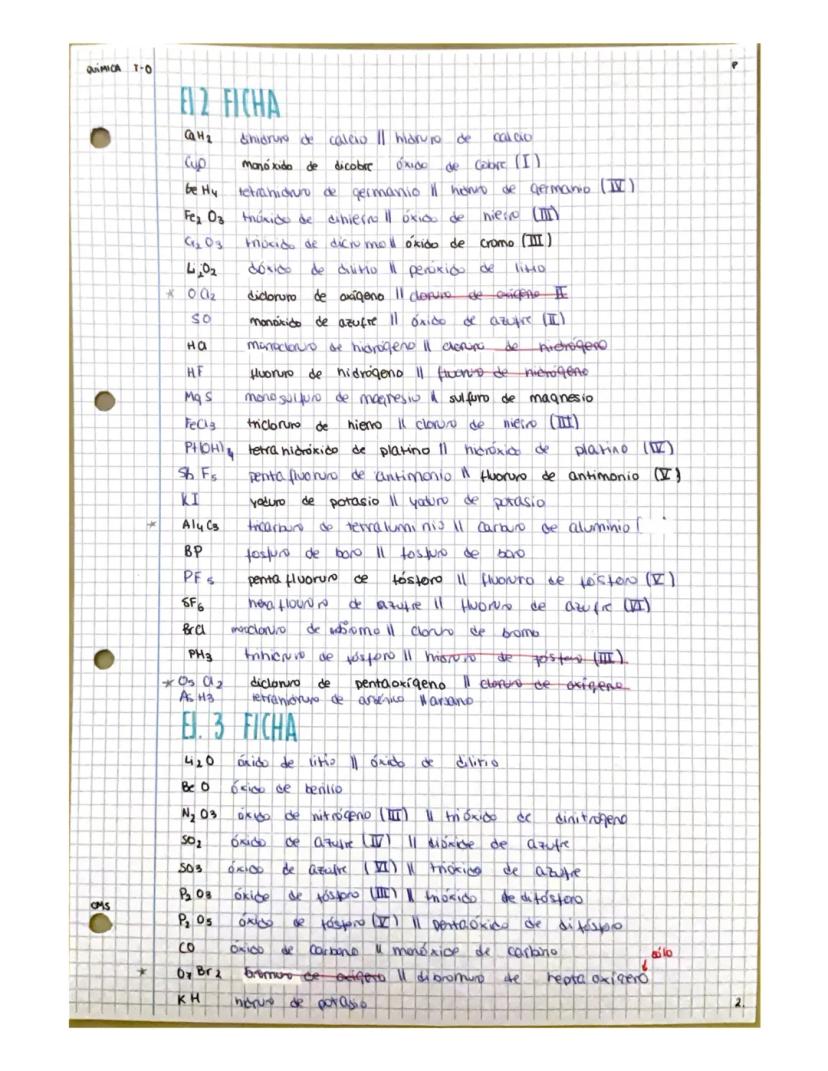 QUÍMICA T-0
P
EJ 2 FICHA
CaH2 dihidruro de calcio || hidruro de calcio
Cu2O monóxido de dicobre óxido de cobre (I)
GeH4 tetrahidruro de germanio || hidruro de germanio (IV)
Fe2O3 trióxido de dihierro || óxido de hierro (III)
Cr2O3 trióxido de dicromo || óxido de cromo (III)
Li2O2 dióxido de dilitio || peróxido de litio
* OCl2 dicloruro de oxígeno || cloruro de oxígeno II
SO monóxido de azufre || óxido de azufre (II)
HCl monocloruro de hidrógeno || cloruro de hidrógeno
HF fluoruro de hidrógeno || fluoruro de hidrógeno
MgS monosulfuro de magnesio || sulfuro de magnesio
FeCl3 tricloruro de hierro || cloruro de hierro (III)
Pt(OH)4 tetrahidróxido de platino || hidróxido de platino (IV)
SbF5 pentafluoruro de antimonio || fluoruro de antimonio (V)
KI yoduro de potasio || yoduro de potasio
* Al4C3 tricarburo de tetraluminio || carburo de aluminio (
BP fosfuro de boro || fosfuro de boro
PF5 pentafluoruro de fósforo || fluoruro de fósforo (V)
SF6 hexafluoruro de azufre || fluoruro de azufre (VI)
BrCl monocloruro de bromo || cloruro de bromo
PH3 trihidruro de fósforo || hidruro de fósforo (III)
* O5Cl2 dicloruro de pentaoxígeno || cloruro de oxígeno
AsH3 tetrahidruro de arsénico || arsano
EJ. 3 FICHA
Li2O óxido de litio || óxido de dilitio
BeO óxido de berilio
N2O3 óxido de nitrógeno (III) || trióxido de dinitrogeno
SO2 óxido de azufre (IV) || dióxido de azufre
SO3 óxido de azufre (VI) || trióxido de azufre
P2O3 óxido de fósforo (III) || trióxido de difósforo
P2O5 óxido de fósforo (V) || pentaóxido de difósforo
CMS
CO óxido de carbono || monóxido de carbono
sólo
* O7Br2 bromuro de oxígeno || dibromuro de heptaoxígeno
KH hidruro de potasio
2.